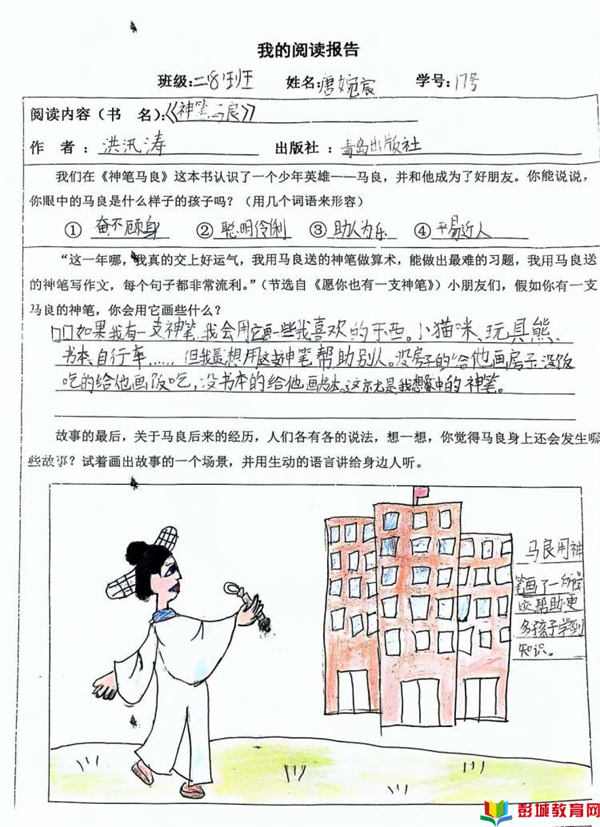 我的阅读报告
班级:二8班 姓名:唐婉宸 学号:17号
阅读内容（书 名）:《神笔马良》
作 者 : 洪汛涛 出版社 : 青岛出版社
我们在《神笔马良》这本书认识了一个少年英雄——马良，并和他成为了好朋友。你能说说，
你眼中的马良是什么样子的孩子吗？（用几个词语来形容）
① 奋不顾身 ② 聪明伶俐 ③ 助人为乐 ④ 平易近人
“这一年哪，我真的交上好运气，我用马良送的神笔做算术，能做出最难的习题，我用马良送
的神笔写作文，每个句子都非常流利。”（节选自《愿你也有一支神笔》）小朋友们，假如你有一支
马良的神笔，你会用它画些什么？
如果我有一支神笔,我会用它画一些我喜欢的东西。小猫咪、玩具熊、
书本、自行车……但我最想用这支神笔帮助别人。没房子的给他画房子,没饭
吃的给他画饭吃,没书本的给他画书本。这就是我想象中的神笔。
故事的最后，关于马良后来的经历，人们各有各的说法，想一想，你觉得马良身上还会发生哪
些故事？试着画出故事的一个场景，并用生动的语言讲给身边人听。
马良用神
笔画了一所学
校,帮助更
多孩子学到
知识。
彭城教育网